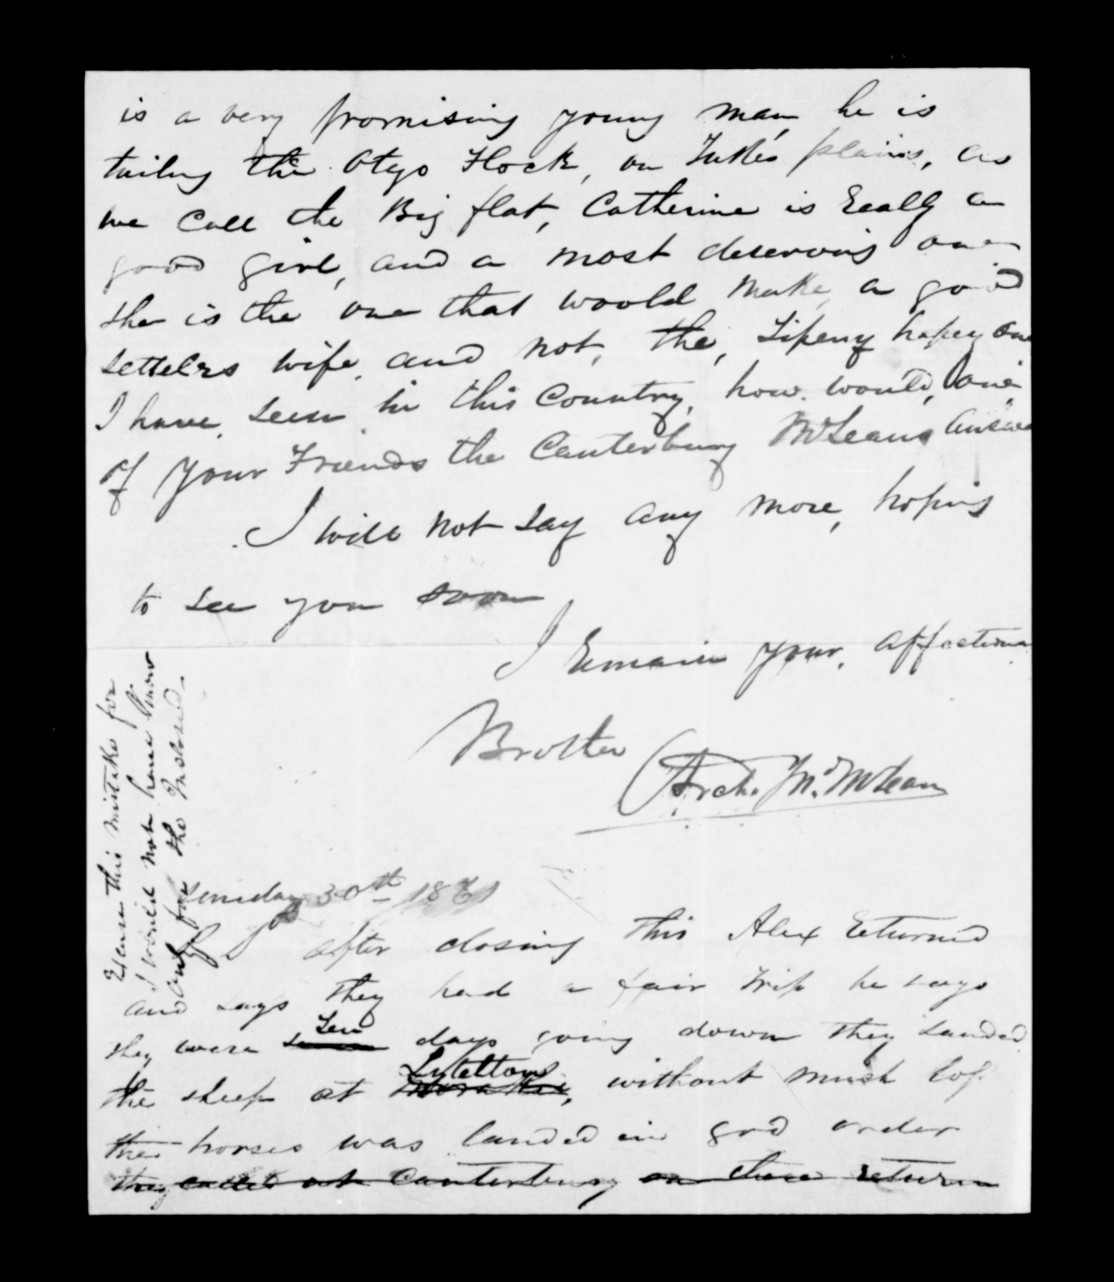 is a very promising young man, he is
tailing the Otego Flock, on Tuke's plains, as
we Call the Big flat, Catherine is Really a
good girl, and a most deserving one
she is the one that would make, a good
settelrs wife, and not, the,
I have, seen in this Country, how, would, one
of your Friends the Canterbury McLeans answer
I will not say any more, hoping
to see you soon
I Remain your, affectiona
Brother
Arch. Jn. McLean
Excuse this mistake for
I would not have known
only for the Inclosed.
30th 1861
after closing this Alex Returned
and says they had a fair trip he says
they were ten days going down they landed
the sheep at Lyteltown, without mush loss
their horses was landed in good order
they called at Canterbury on there return